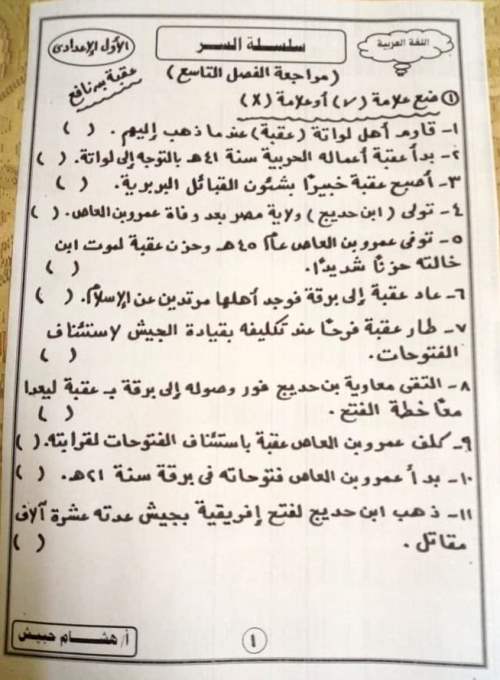 الأول الإعدادى
سلسلة السر
اللغة العربية
(مراجعة الفصل التاسع)
عقبة بن نافع
١ ضع علامة (√) أو علامة (X)
١- قاوم أهل لواتة (عقبة) عندما ذهب إليهم. ( )
٢- بدأ عقبة أعماله الحربية سنة ٤١هـ بالتوجه إلى لواتة. ( )
٣- أصبح عقبة خبيرًا بشئون القبائل البربرية. ( )
٤- تولى (ابن حديج) ولاية مصر بعد وفاة عمرو بن العاص. ( )
٥- توفى عمرو بن العاص عام ٤٥هـ وحزن عقبة لموت ابن
خالته حزنًا شديدًا. ( )
٦- عاد عقبة إلى برقة فوجد أهلها مرتدين عن الإسلام. ( )
٧- طار عقبة فرحًا عند تكليفه بقيادة الجيش لاستئناف
الفتوحات. ( )
٨- التقى معاوية بن حديج فور وصوله إلى برقة بـ عقبة ليعدا
معًا خطة الفتح. ( )
٩- كلف عمرو بن العاص عقبة باستئناف الفتوحات لقرابته. ( )
١٠- بدأ عمرو بن العاص فتوحاته فى برقة سنة ٢١هـ. ( )
١١- ذهب ابن حديج لفتح إفريقية بجيش عدته عشرة آلاف
مقاتل. ( )
١
أ/ هشام حبيش